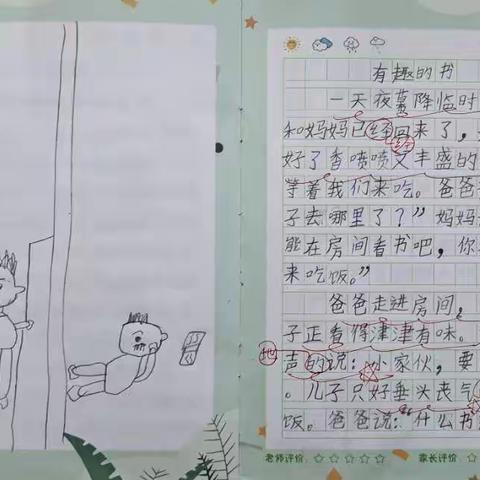 有趣的书
一天夜幕降临时
和妈妈已经回来了，
好了香喷喷又丰盛的
等着我们来吃。爸爸
子去哪里了？”妈妈
能在房间看书吧，你
来吃饭。”
爸爸走进房间，
子正看得津津有味。
声的说：小家伙，要
。儿子只好垂头丧气
饭。爸爸说：“什么书
地
老师评价：☆☆☆☆☆ 家长评价：☆